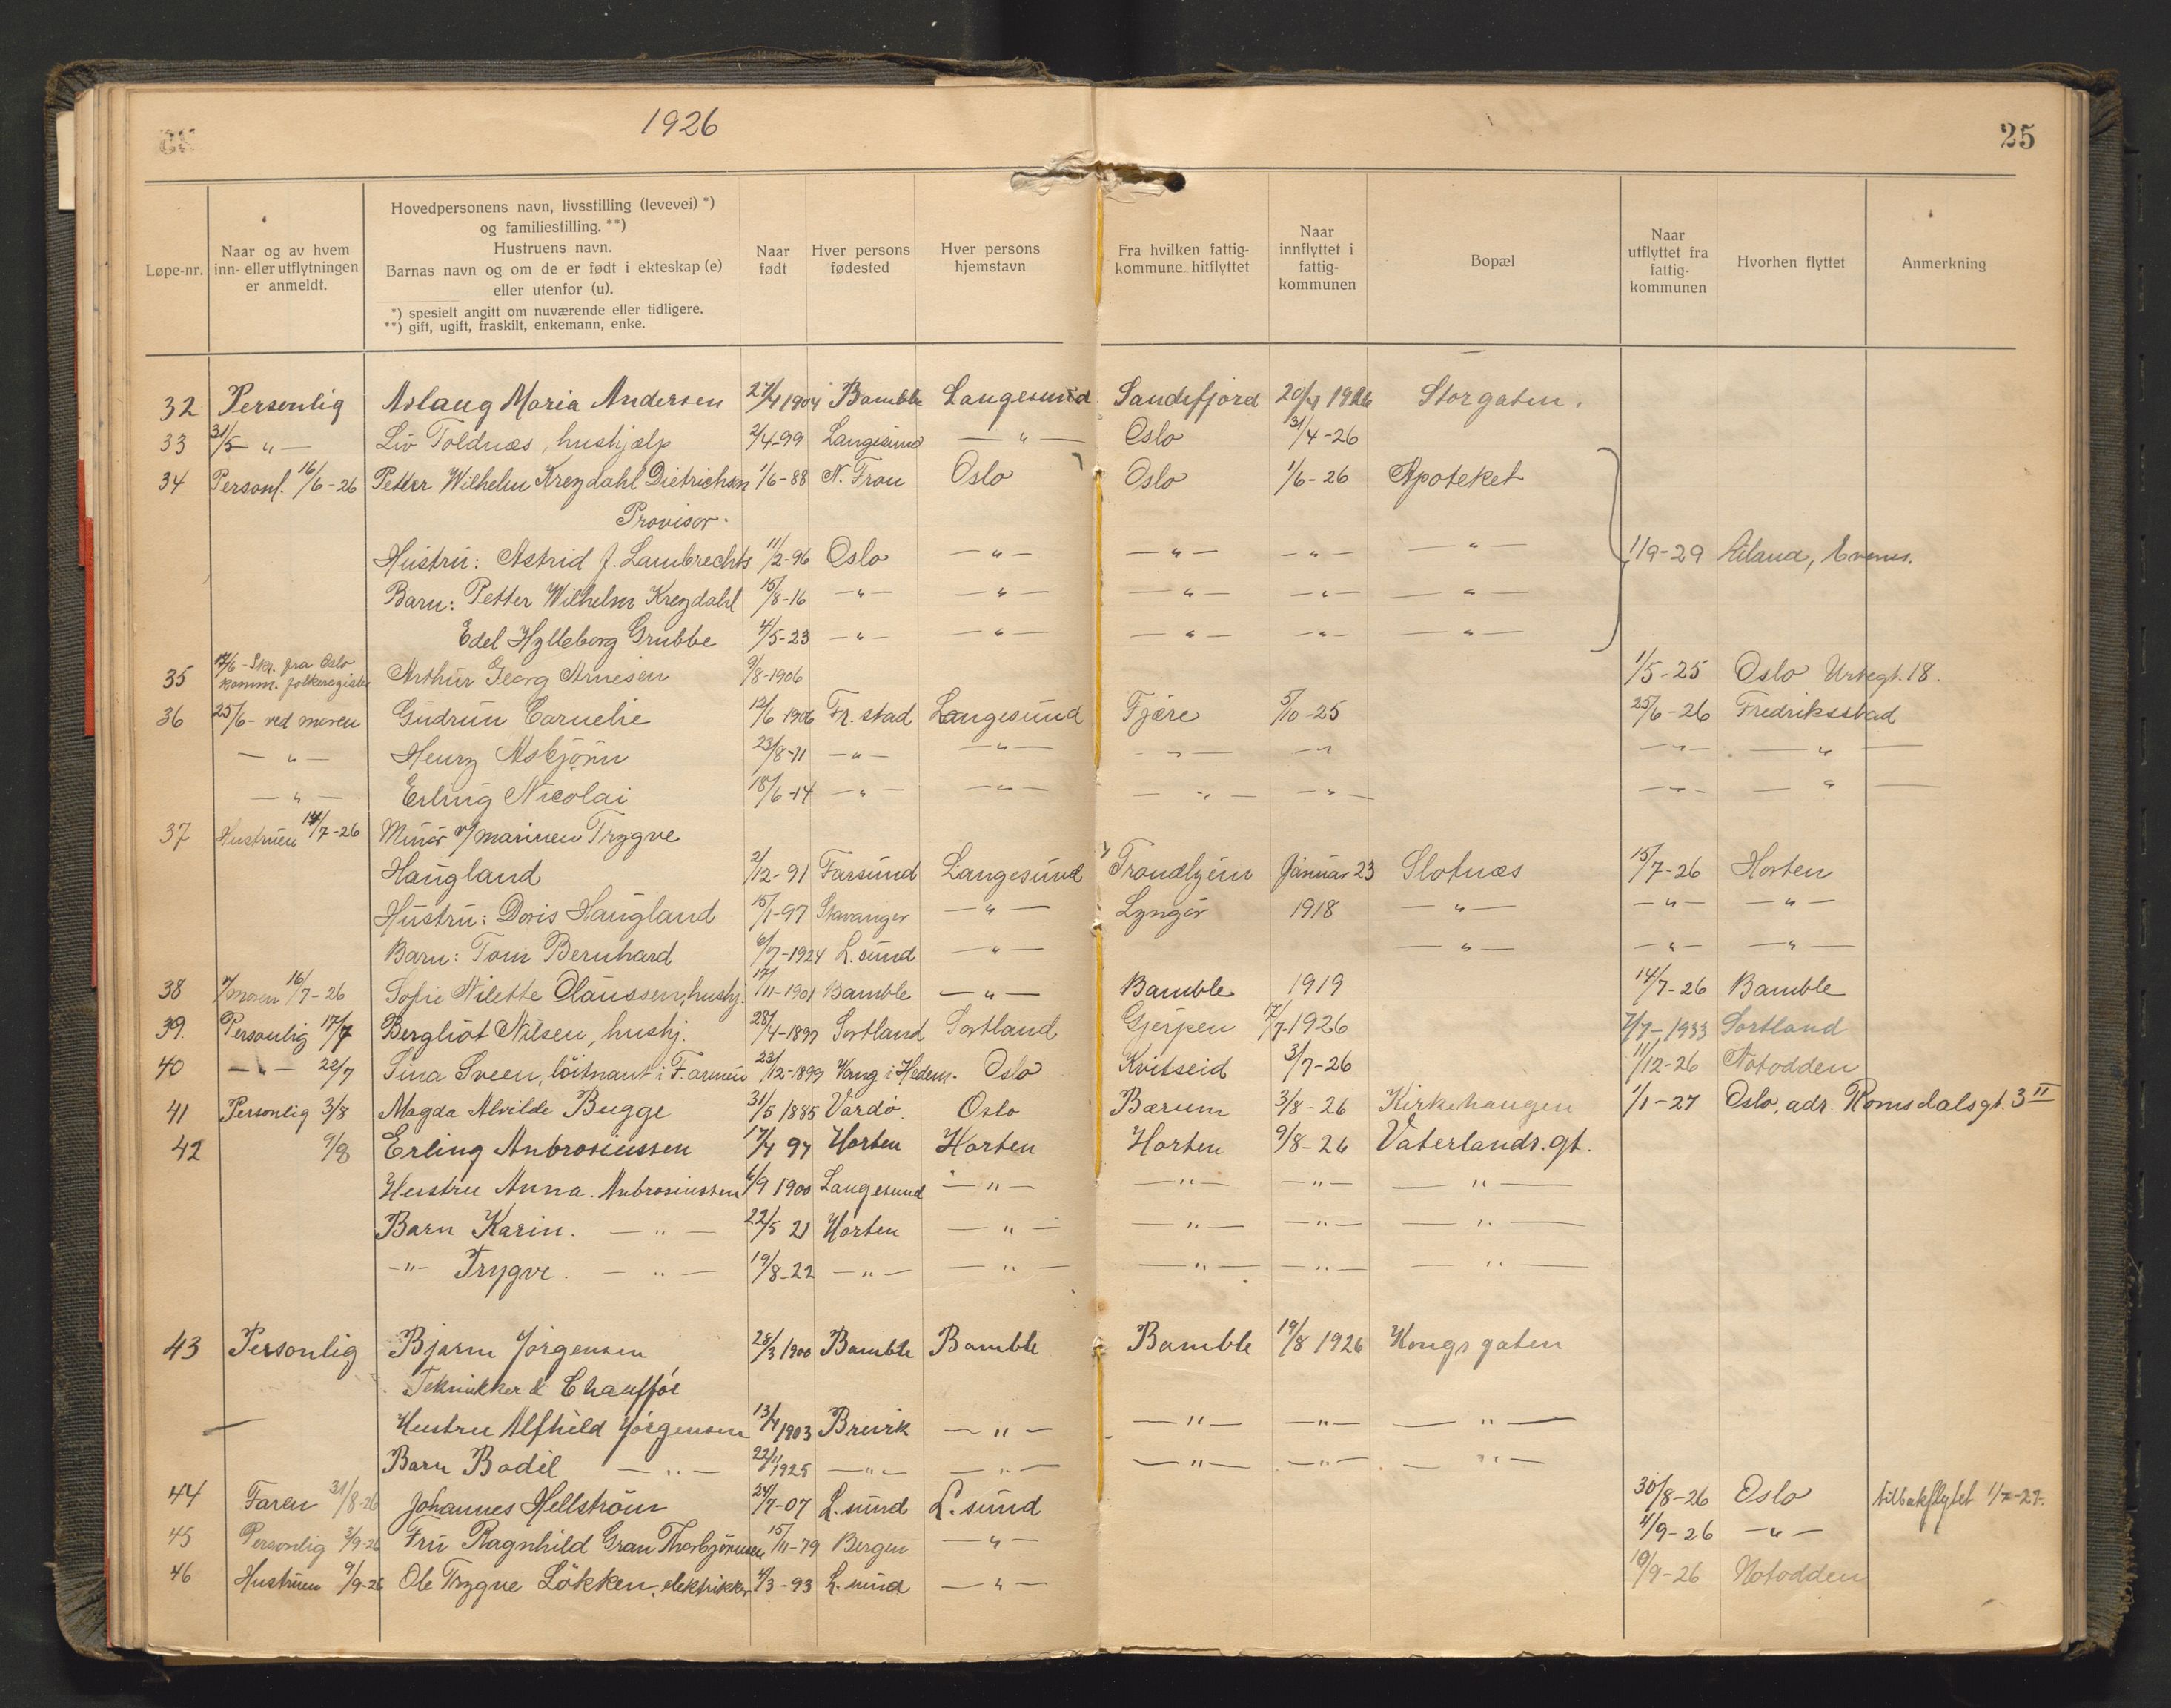 1926
25
Løpe-nr.
Naar og av hvem inn- eller utflytningen er anmeldt.
Hovedpersonens navn, livsstilling (levevei) *) og familiestilling. **) Hustruens navn. Barnas navn og om de er født i ekteskap (e) eller utenfor (u). *) spesielt angitt om nuværende eller tidligere. **) gift, ugift, fraskilt, enkemann, enke.
Naar født
Hver persons fødested
Hver persons hjemstavn
Fra hvilken fattig-kommune hitflyttet
Naar innflyttet i fattig-kommunen
Bopæl
Naar utflyttet fra fattig-kommunen
Hvorhen flyttet
Anmerkning
32 Personlig Aslaug Maria Andersen 27/4 1904 Bamble Langesund Sandefjord 20/4 1926 Storgaten.
33 31/5 — " — Liv Toldnæs, hushjælp 2/4-99 Langesund — " — Oslo 31/4-26
34 Personl. 16/6-26 Petter Wilhelm Kreydahl Dietrichsn 1/6-88 N. Fron Oslo Oslo 1/6-26 Apoteket
Provisor.
Hustru: Astrid J. Lambrechts 11/2-96 Oslo — " — — " — — " — — " — 1/9-29
Barn: Petter Wilhelm Kreydahl 15/8-16 — " — — " — — " — — " — — " —
Edel Hylleborg Grubbe 4/5-23 — " — — " — — " — — " — — " —
35 17/6 - Skr. fra Oslo komm. folkeregister Arthur Georg Arnesen 9/8-1906 1/5-25 Oslo Urtegt. 18.
36 25/6 - ved moren Gudrun Cornelie 12/6 1906 Fr. stad Langesund Fjære 5/10-25 25/6-26 Fredriksstad
— " — Henry Asbjørn 23/8-11 — " — — " — — " — — " — — " — — " —
— " — Erling Nicolai 18/6-14 — " — — " — — " — — " — — " — — " —
37 Hustruen 14/7-26 Minør v/marinen Trygve
Haugland 2/12-91 Farsund Langesund Trondhjem Januar 23 Slotnæs 15/7-26 Horten
Hustru: Doris Haugland 15/1-97 Stavanger — " — Lyngør 1918 — " — — " — — " —
Barn: Tom Bernhard 6/7-1924 L. sund — " — — " — — " — — " —
38 v/moren 16/7-26 Sofie Nilette Claussen, hushj. 17/11-1901 Bamble — " — Bamble 1919 14/7-26 Bamble
39. Personlig 17/7 Bergliot Nilsen, hushj. 28/4-1897 Sortland Sortland Gjerpen 17/7-1926 7/7-1933 Sortland
40 — " — 22/7 Tina Sveen, löitnant i F. armeen 23/12-1899 Vang i Hedem. Oslo Kvitseid 3/7-26 11/12-26 Notodden
41 Personlig 3/8 Magda Alvilde Bugge 31/5 1885 Vardö. Oslo Bærum 3/8-26 Kirkehaugen 1/1-27 Oslo, adr. Romsdalsgt. 3 II
42 9/8 Erling Ambrosiussen 17/4 97 Horten Horten Horten 9/8-26 Vaterlands. gt.
Hustru Anna. Ambrosiussen 6/9 1900 Langesund — " — — " — — " — — " —
Barn Karin. — " — 22/5 21 Horten — " — — " — — " — — " —
— " — Trygve. — " — 19/8-22 — " — — " — — " — — " — — " —
43 Personlig Bjarne Jörgensen 28/3 1900 Bamble Bamble Bamble 19/8 1926 Kongsgaten
Teknikker & Chaufför
— Hustru Alfhild Jörgensen 13/4 1903 Brevik — " — — " — — " — — " —
Barn Bodil — " — 22/11 1925 — " — — " — — " — — " — — " —
44 Faren 31/8-26 Johannes Hellström 24/7-07 L. sund L. sund 30/8-26 Oslo tilbakeflytet 1/7-27.
45 Personlig 3/9-26 Fru Ragnhild Gran Thorbjörnsen 15/11-79 Bergen — " — 4/9-26 — " —
46 Hustruen 9/9-26 Ole Trygve Lökken, elektrikker 4/3-93 L. sund — " — 10/9-26 Notodden